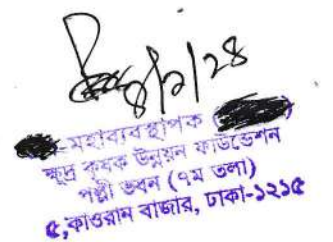 ৪/২/২৪
মহাব্যবস্থাপক (
ক্ষুদ্র কৃষক উন্নয়ন ফাউন্ডেশন
পল্লী ভবন (৭ম তলা)
৫,কাওরান বাজার, ঢাকা-১২১৫